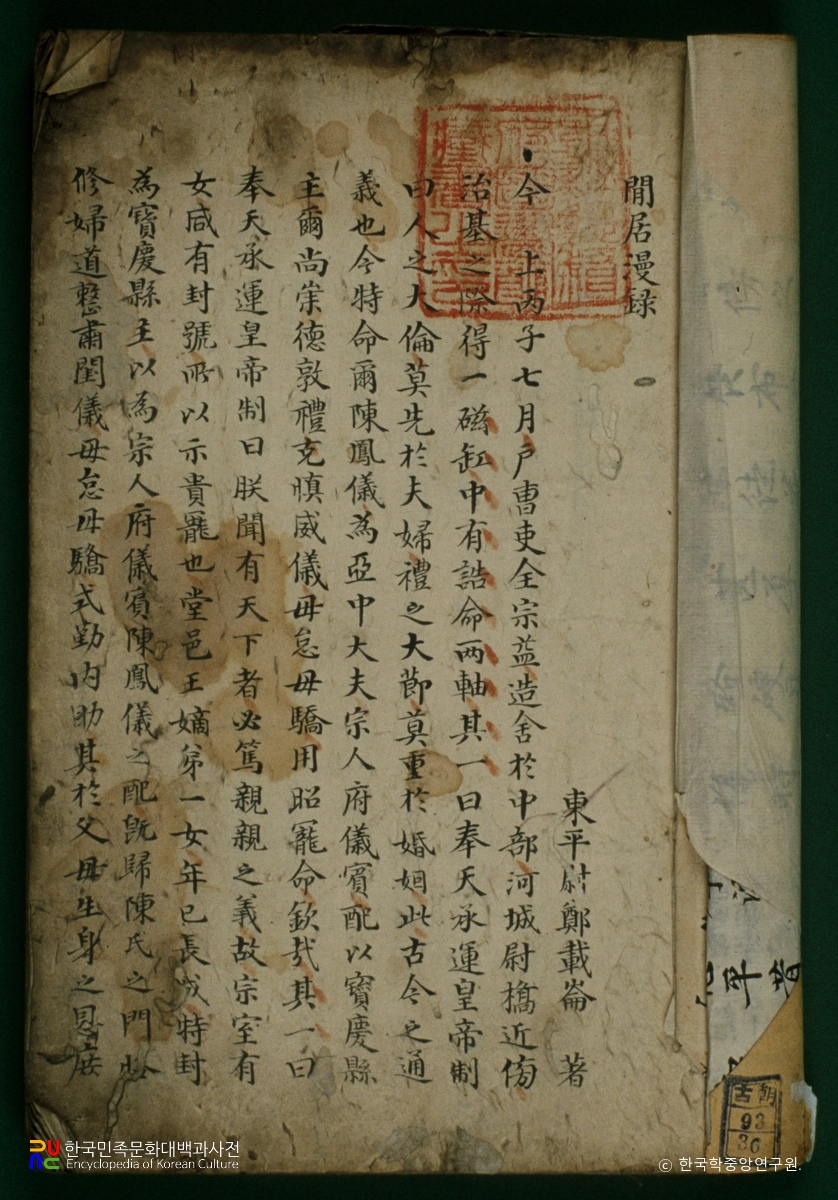 閒居漫錄
東平尉鄭載崙 著
今 上丙子七月戶曹吏全宗益造舍於中部河城尉橋近傍
治基之際得一磁缸中有誥命两軸其一曰奉天承運皇帝制
曰人之大倫莫先於夫婦禮之大節莫重於婚姻此古今之通
義也今特命爾陳鳳儀為亞中大夫宗人府儀賓配以寶慶縣
主爾尚崇德敦禮克愼威儀毋怠毋驕用昭寵命欽哉其一曰
奉天承運皇帝制曰朕聞有天下者必篤親親之義故宗室有
女咸有封號所以示貴寵也堂邑王嫡第一女年已長成特封
為寶慶縣主以為宗人府儀賓陳鳳儀之配旣歸陳氏之門
修婦道整肅閨儀毋怠毋驕式勤內助其於父母生身之恩庶
古朝
93
36
한국민족문화대백과사전
Encyclopedia of Korean Culture
© 한국학중앙연구원.